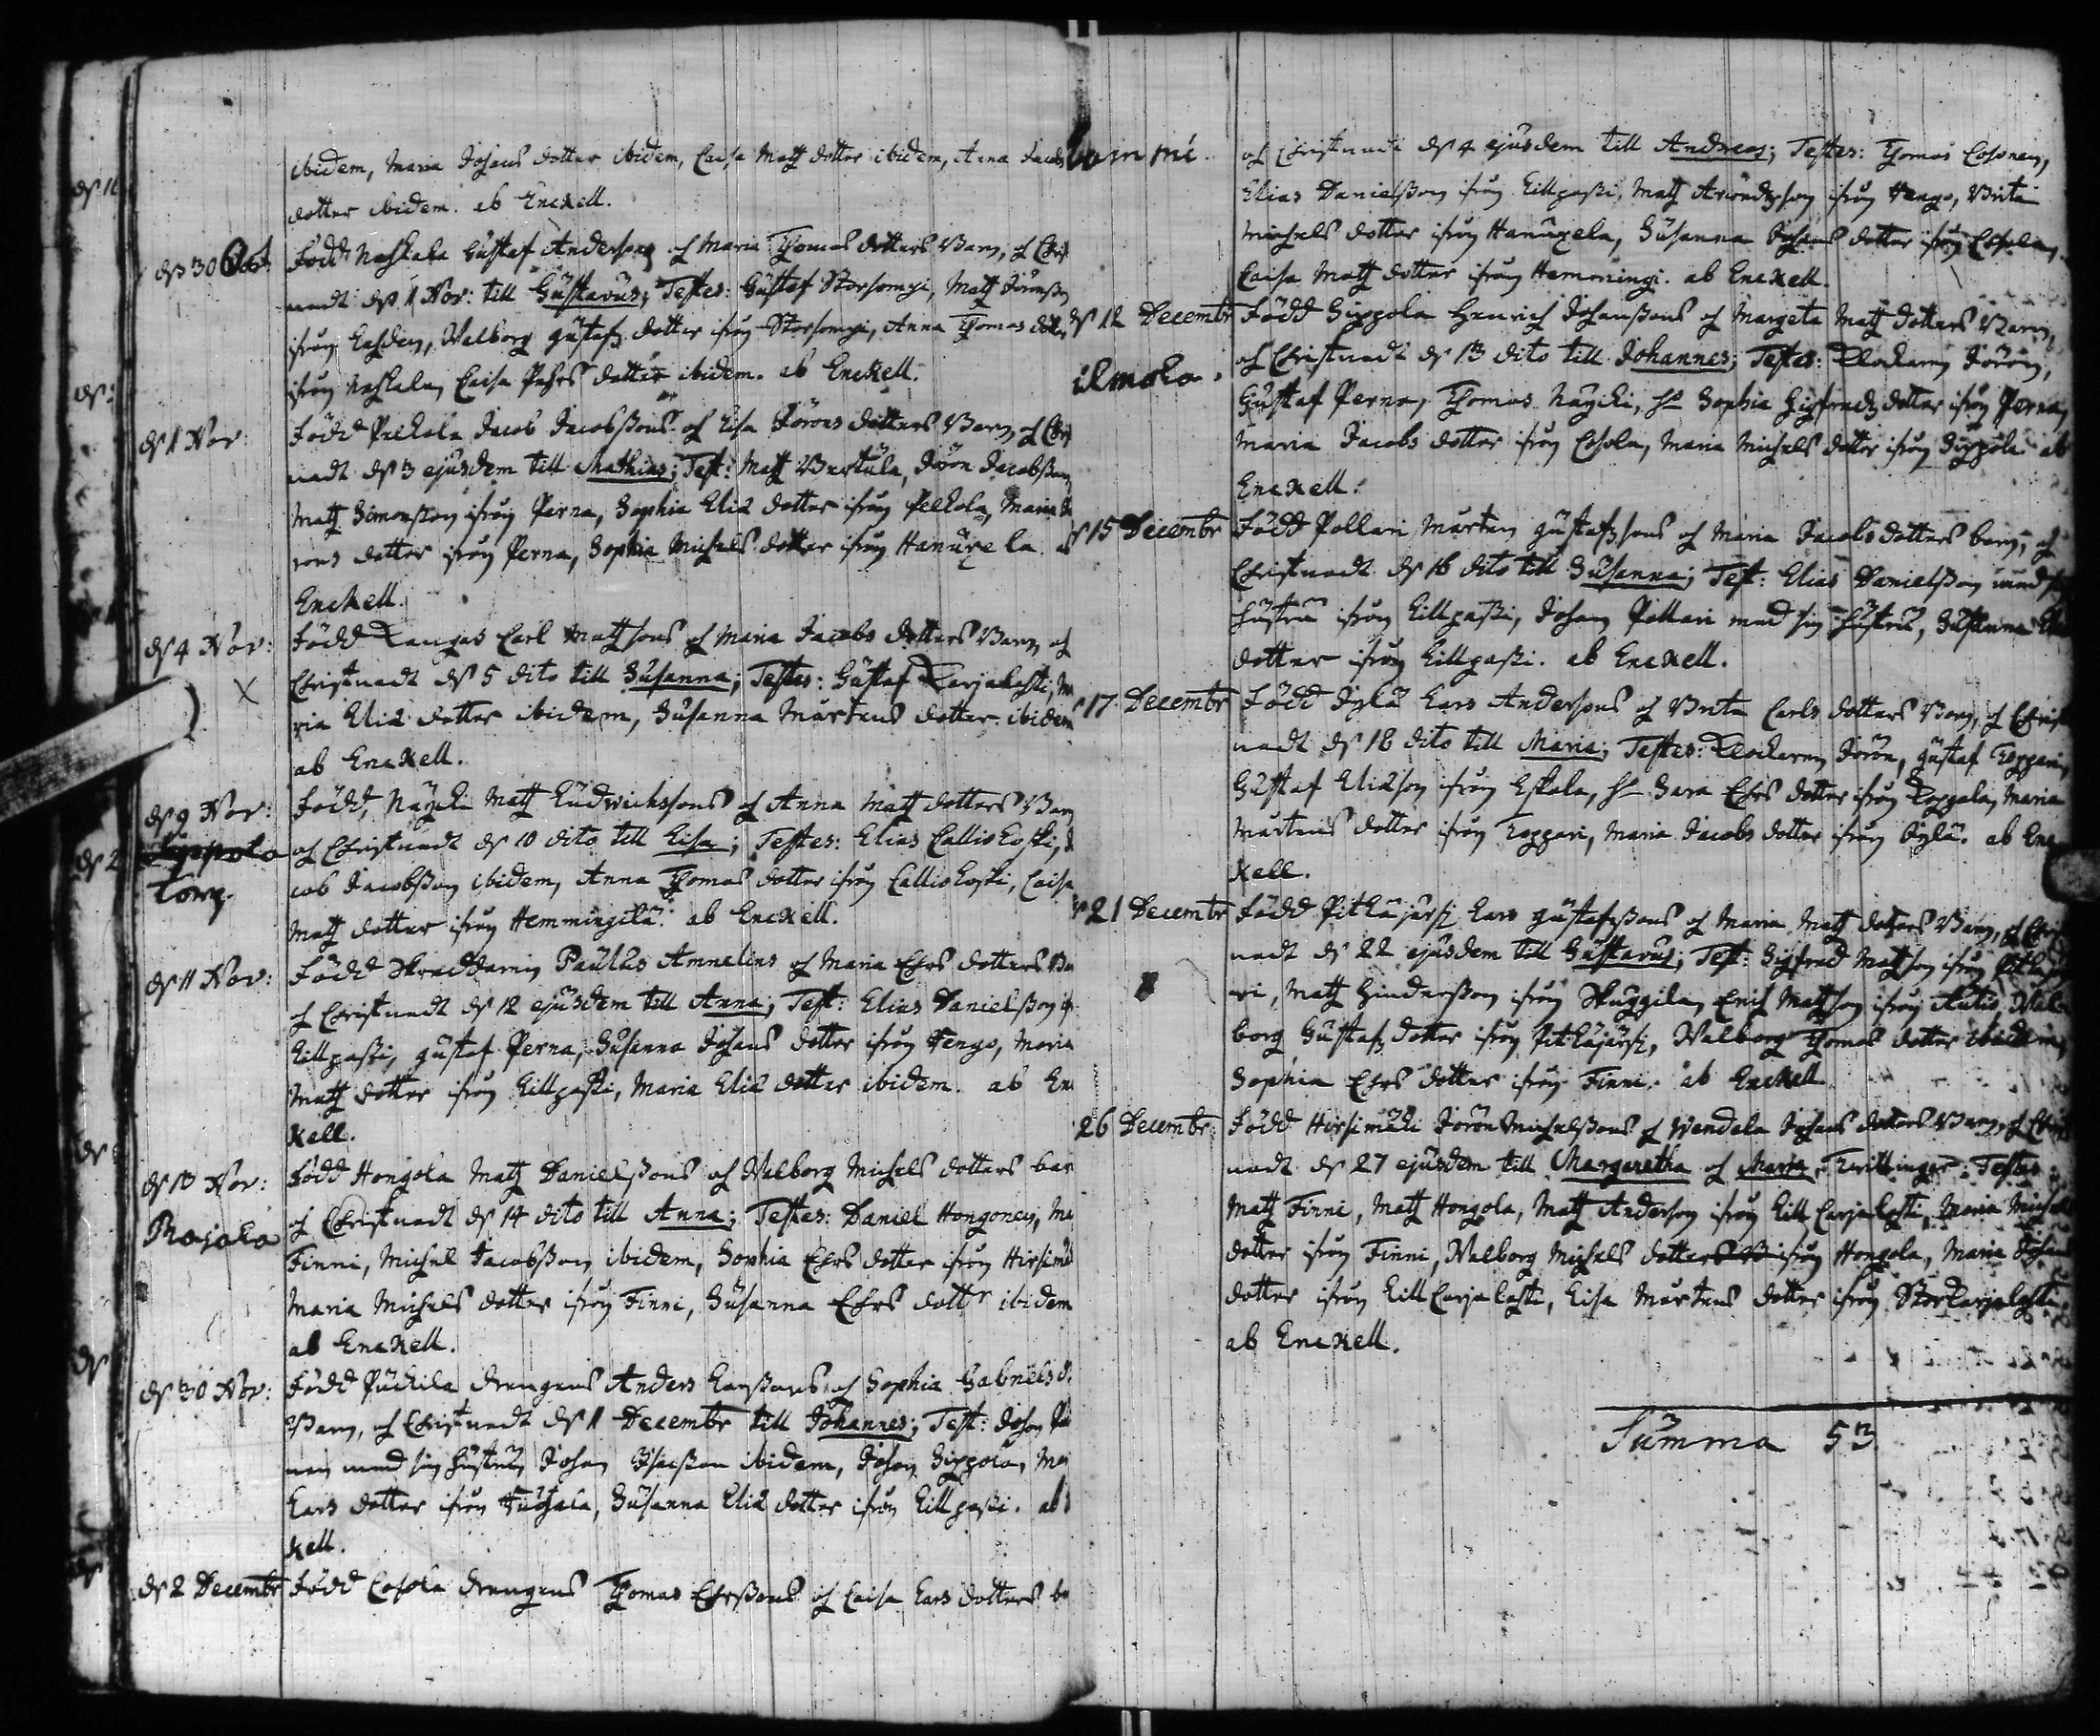 ibidem, Maria Johans dotter ibidem, Caisa Matz dotter ibidem, Anna Jacobs
dotter ibidem. ab Enckell.
ds 30 Oct. Född Nackala Gustaf Andersons och Maria Thomas dotters Barn, och Christ
nadt ds 1 Nov: till Gustavus; Testes: Gustaf Storsompi, Matz
ifrån Walborg Gustafs dotter ifrån Storsompi, Anna Thomas dotter
ifrån Nackala, Caisa Pehrs dotter ibidem. ab Enckell.
ds 1 Nov: Född Pelkola Jacob Jacobssons och Lisa Jörans dotters Barn och Christ
nadt ds 3 ejusdem till Mathias; Test: Matz Burtula, Jöran Jacobsson
Matz Simonsson ifrån Perna, Sophia Eliæ dotter ifrån Pelkola, Maria
rons dotter ifrån Perna, Sophia Michels dotter ifrån Hanukela. ab
Enckell.
ds 4 Nov: Född Kangas Carl Matzsons och Maria Jacobs dotters Barn och
Christnadt ds 5 dito till Susanna; Testes: Gustaf Karjakoski, Ma
ria Eliæ dotter ibidem, Susanna Mårtens dotter ibidem
ab Enckell.
ds 9 Nov: Född Näycki Matz Ludwichssons och Anna Matz dotters Barn
och Christnadt ds 10 dito till Lisa; Testes: Elias Callio Koski,
torp. cob Jacobsson ibidem, Anna Thomas dotter ifrån Callio Koski, Caisa
Matz dotter ifrån Hemmingilä. ab Enckell.
ds 11 Nov: Född Skraddarens Paulus Amnelius och Maria Ehrs dotters Ba
och Christnadt ds 12 ejusdem till Anna; Test: Elias Danielsson
Lillpassi, Gustaf Perna, Susanna Johans dotter ifrån Hengo, Maria
Matz dotter ifrån Lillpassi, Maria Eliæ dotter ibidem. ab En
kell.
ds 13 Nov: Född Hongola Matz Danielssons och Walborg Michels dotters bar
Rajala och Christnadt ds 14 dito till Anna; Testes: Daniel Hongonen, Ma
Finni, Michel Jacobsson ibidem, Sophia Ehrs dotter ifrån Hirsimä
Maria Michels dotter ifrån Finni, Susanna Ehrs dottr ibidem
ab Enckell.
ds 30 Nov: Född Puckila drengens Anders Larssons och Sophia Gabriels d.
Barn, och Christnadt ds 1 Decembr till Johannes; Test: Johan
nen med sin hustru, Johan ibidem, Johan Sippola, Ma
Lars dotter ifrån Susanna Eliæ dotter ifrån Lillpassi. ab
kell.
ds 2 Decembr Född Cosola drengens Thomas Ehrssons och Caisa Lars dotters ba
och Christnadt ds 4 ejusdem till Andreas; Testes: Thomas Cosonen,
Elias Danielsson ifrån Lillpassi, Matz ifrån Hengo, Brita
Michels dotter ifrån Hanukela, Susanna Johans dotter ifrån Cosola,
Caisa Matz dotter ifrån ab Enckell.
ds 12 Decembr Född Sippola Henrich Johanssons och Margeta Matz dotters Barn,
ilmola. och Christnadt ds 13 dito till Johannes; Testes: Klockarn Jöran,
Gustaf Perna, Thomas Näycki, Sophia Sigfredz dotter ifrån Perna,
Maria Jacobs dotter ifrån Cosola, Maria Michels dotter ifrån Sippola ab
Enckell.
ds 15 Decembr Född Pollari Mårten Gustafssons och Maria Jacobs dotters barn, och
Christnadt ds 16 dito till Susanna; Test: Elias Danielsson med sin
hustru ifrån Lillpassi, Johan Pollari med sin hustru, Susanna
dotter ifrån Lillpassi. ab Enckell.
17 Decembr Född Jylä Lars Andersons och Brita Carls dotters Barn, och Christ
nadt ds 18 dito till Maria; Testes: Klockarn Jöran, Gustaf
Gustaf Eliæson ifrån Eskola, Sara Ehrs dotter ifrån Maria
Mårtens dotter ifrån Maria Jacobs dotter ifrån Jylä. ab Enc
kell.
21 Decembr Född Pitkäjärfi Lars Gustafssons och Maria Matz dotters Barn, och Christ
nadt ds 22 ejusdem till Gustavus; Test: Sigfred Matzson ifrån
Matz Hindersson ifrån Erich Matzson ifrån Autio, Wal
borg Gustafs dotter ifrån Pitkäjärfi, Walborg Thomas dotter ibidem,
Sophia Ehrs dotter ifrån Finni. ab Enckell.
26 Decembr: Född Hirsimäki Jöran Michelssons och Wendela Johans dotters Barn, och Christ
nadt ds 27 ejusdem till Margaretha och Maria, Twillingar; Testes
Matz Finni, Matz Hongola, Matz Anderson ifrån Lill Carjakoski, Maria Michels
dotter ifrån Finni, Walborg Michels dotter ifrån Hongola, Maria Johans
dotter ifrån Lill Carjakoski, Lisa Mårtens dotter ifrån Storkarjakoski.
ab Enckell.
Summa 53